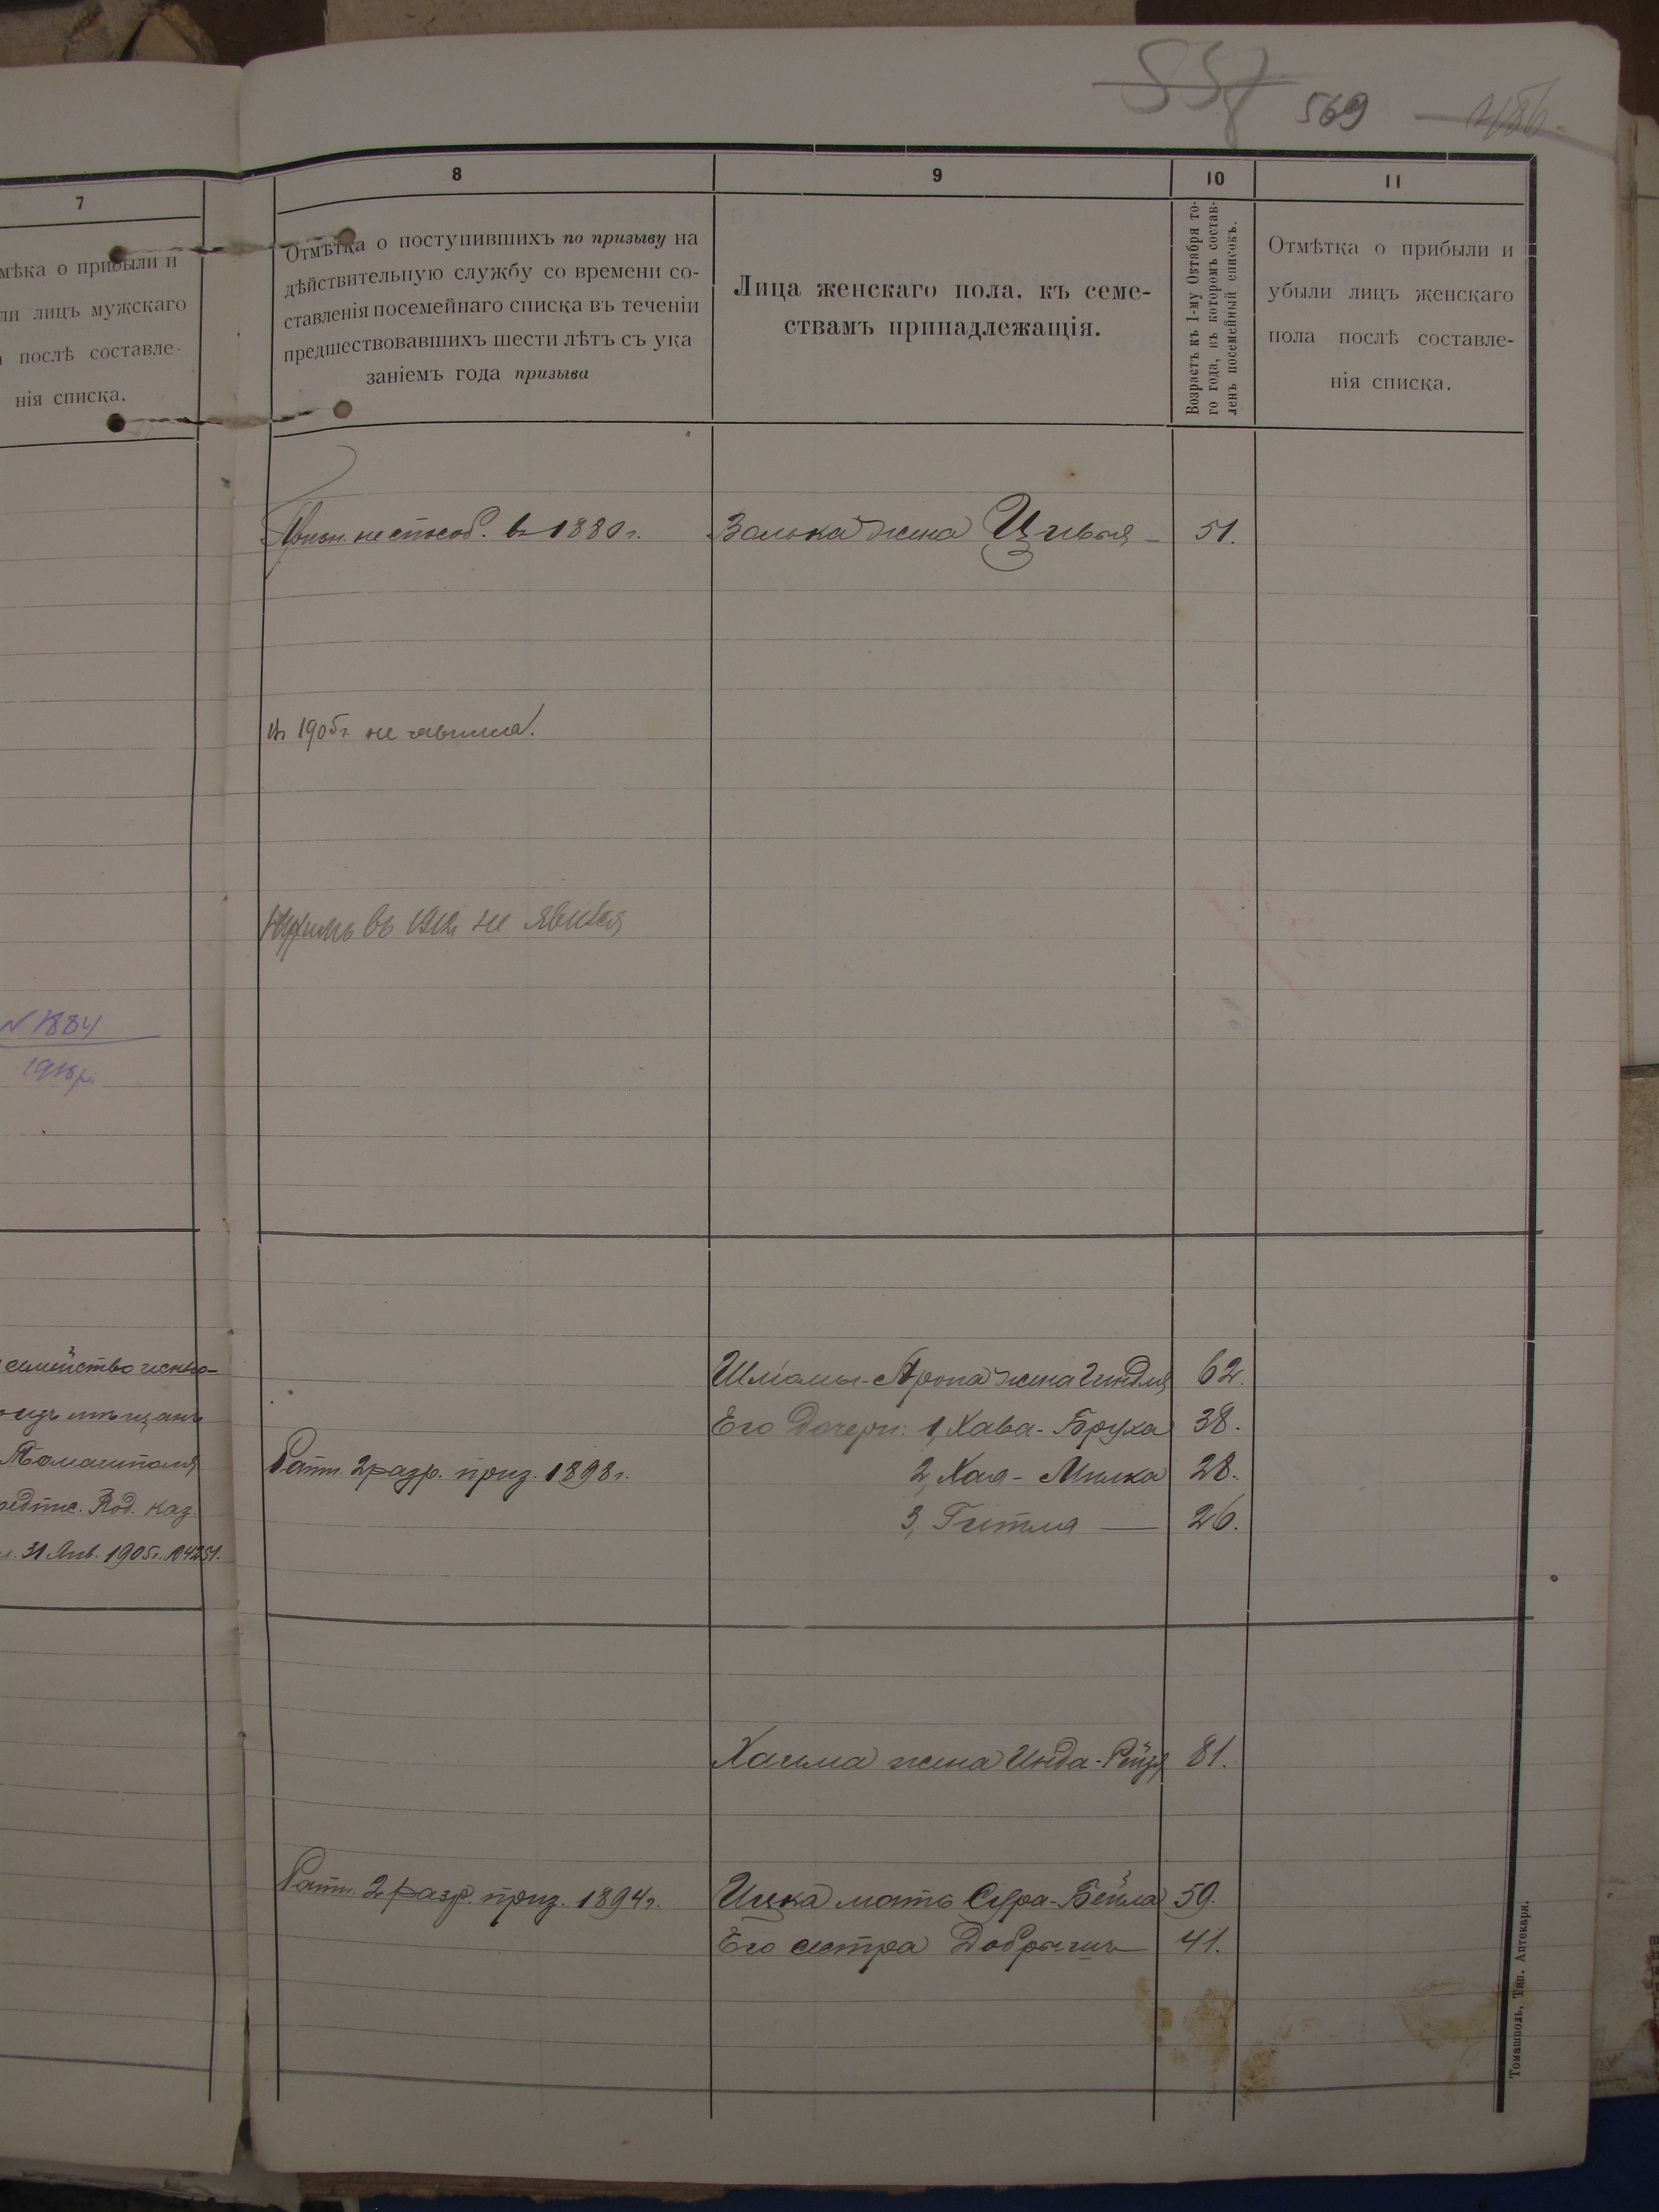 557 569
7 8 9 10 11
мѣка о прибыли и
ли лицъ мужскаго
послѣ составле-
нія списка.
Отмѣтка о поступившихъ по призыву на
дѣйствительную службу со времени со-
ставленія посемейнаго списка въ теченіи
предшествовавшихъ шести лѣтъ съ ука
заніемъ года призыва
Лица женскаго пола, къ семе-
ствамъ принадлежащія.
Возрастъ къ 1-му Октября то-
го года, въ которомъ состав-
ленъ посемейный списокъ.
Отмѣтка о прибыли и
убыли лицъ женскаго
пола послѣ составле-
нія списка.
неспособ. в 1880 г. Залька жена Цивья 51.
въ 1905 г. не явился.
въ 1912 не явился
N 1884
семейство исклю-
мѣщанъ
Томашполя
Под. каз.
31 Янв. 1905 г. №4251.
Шлёмы-Арона жена Гиндля 62.
Его дочери: 1, Хава-Бруха 38.
Ратн. 2 разр. приз. 1898 г. 2, Хая-Милка 28.
3, Гитля — 26.
Хаима жена Инда-Рейзя 81.
Ратн. 2 разр. приз. 1894 г. Ицка мать Сура-Бейла 59.
Его сестра 41.
Томашполь, Тип. Аптекаря.